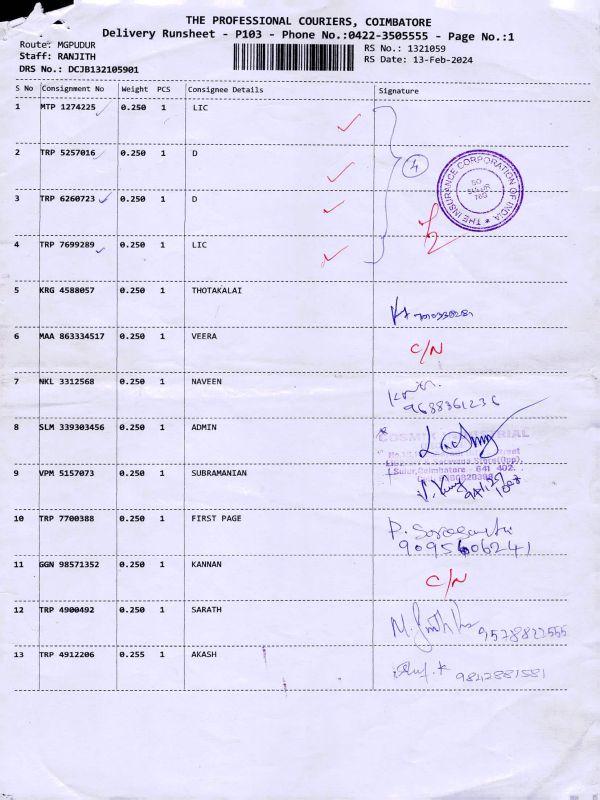 THE PROFESSIONAL COURIERS, COIMBATORE
Delivery Runsheet - P103 - Phone No.:0422-3505555 - Page No.:1
Route: MGPUDUR
RS No.: 1321059
Staff: RANJITH
RS Date: 13-Feb-2024
DRS No.: DCJB132105901
S No Consignment No Weight PCS Consignee Details Signature
1 MTP 1274225 0.250 1 LIC
2 TRP 5257016 0.250 1 D
3 TRP 6260723 0.250 1 D
4 TRP 7699289 0.250 1 LIC
4
THE INSURANCE CORPORATION OF INDIA
5 KRG 4588057 0.250 1 THOTAKALAI
6 MAA 863334517 0.250 1 VEERA C/N
7 NKL 3312568 0.250 1 NAVEEN
9688361236
8 SLM 339303456 0.250 1 ADMIN
9 VPM 5157073 0.250 1 SUBRAMANIAN
10 TRP 7700388 0.250 1 FIRST PAGE
9095606241
11 GGN 98571352 0.250 1 KANNAN C/N
12 TRP 4900492 0.250 1 SARATH 9578822555
13 TRP 4912206 0.255 1 AKASH 9842881581